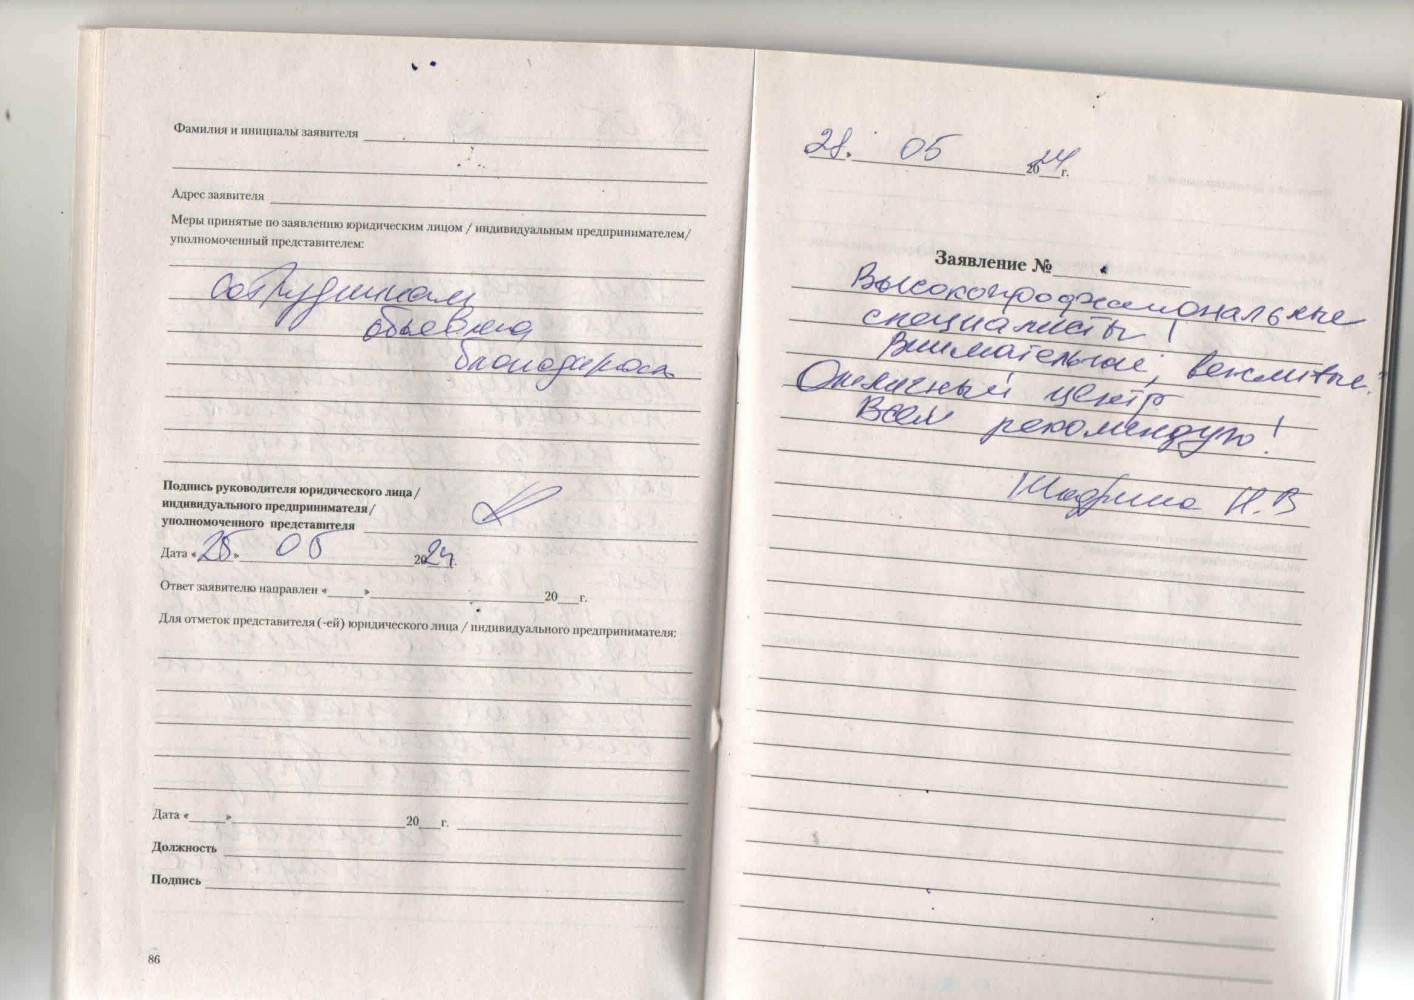 Фамилия и инициалы заявителя
Адрес заявителя
Меры принятые по заявлению юридическим лицом / индивидуальным предпринимателем/
уполномоченный представителем:
сотрудникам
объявлена
благодарность
Подпись руководителя юридического лица /
индивидуального предпринимателя/
уполномоченного представителя
Дата «28» 05 2024г.
Ответ заявителю направлен «    » 20   г.
Для отметок представителя (-ей) юридического лица / индивидуального предпринимателя:
Дата «    » 20   г.
Должность
Подпись
86
28. 05 2024г.
Заявление №
Высокопрофессиональные
специалисты!
Внимательные, вежливые.
Отличный центр
Всем рекомендую!
Шадрина Н.В